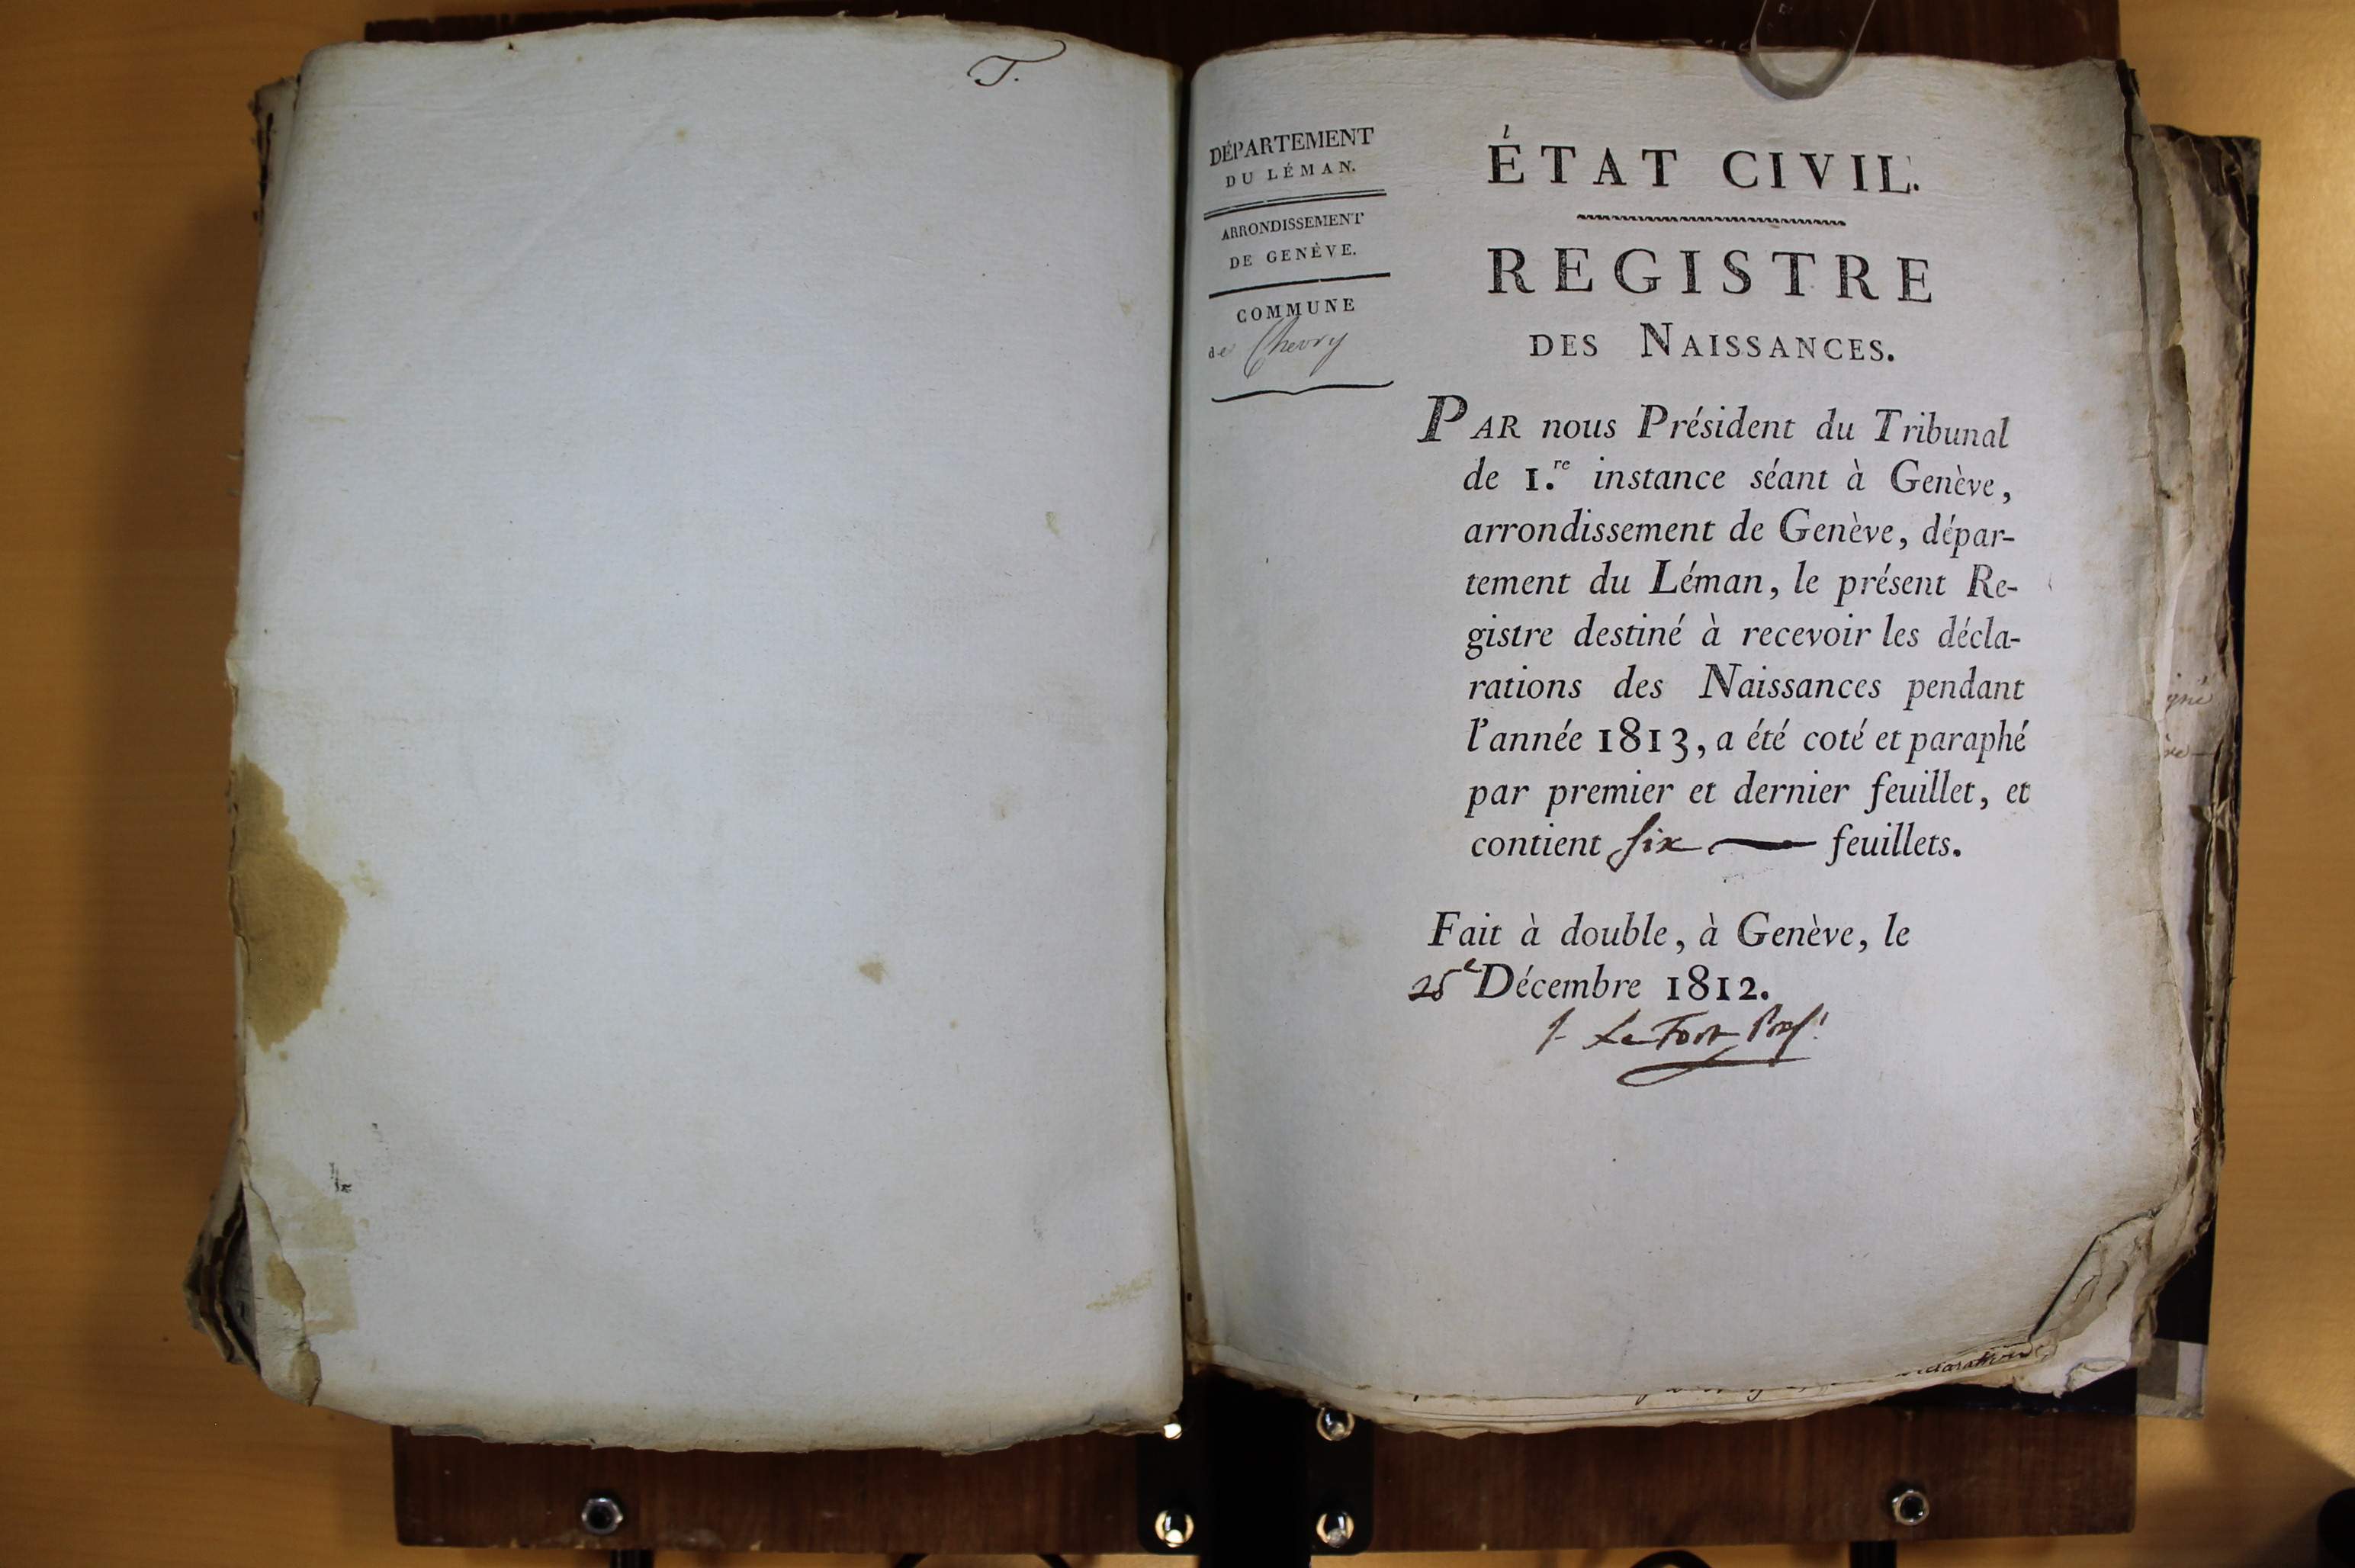 T.
DÉPARTEMENT
DU LÉMAN.
ARRONDISSEMENT
DE GENÈVE.
COMMUNE
de Chevry
ÉTAT CIVIL.
REGISTRE
DES NAISSANCES.
PAR nous Président du Tribunal
de 1.re instance séant à Genève,
arrondissement de Genève, dépar-
tement du Léman, le présent Re-
gistre destiné à recevoir les décla-
rations des Naissances pendant
l'année 1813, a été coté et paraphé
par premier et dernier feuillet, et
contient six feuillets.
Fait à double, à Genève, le
25e Décembre 1812.
Le Fort